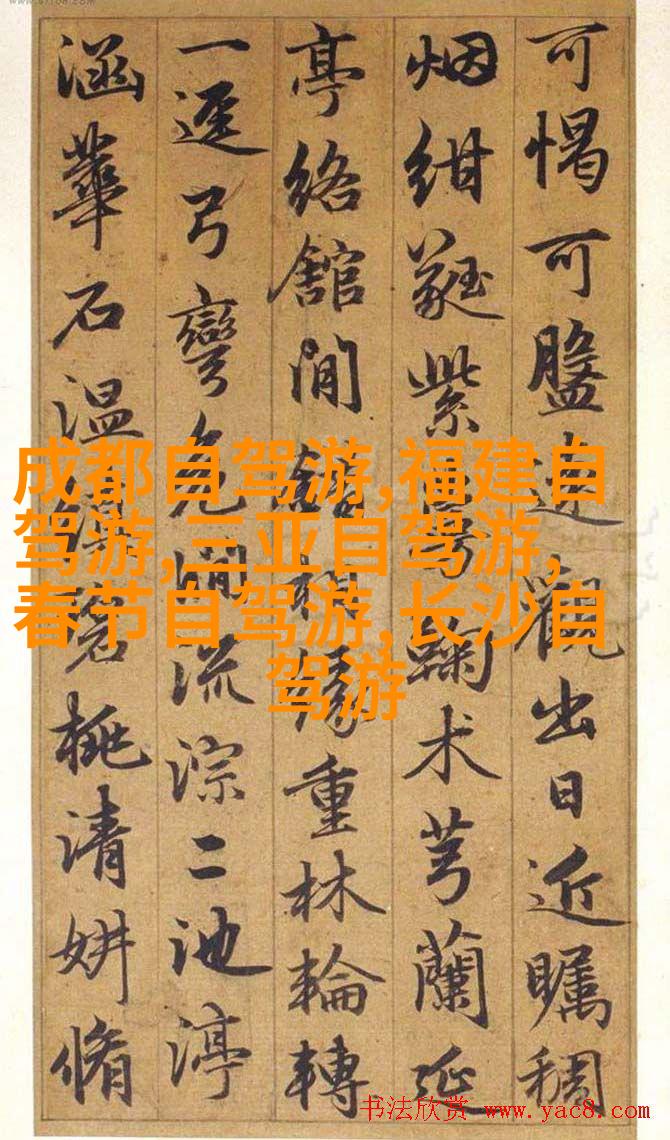 可愒可盤觀出日近矚稠
烟紺蕤紫鞠术芎蘭延
亭絡館閒重林輪轉
一逕弓彎澗流淙二池渟
涵華石温桃清妍脩
成都自驾游,福建自
驾游,三亚自驾游,
春节自驾游,长沙自
驾游
书法欣赏 www.yac8.com